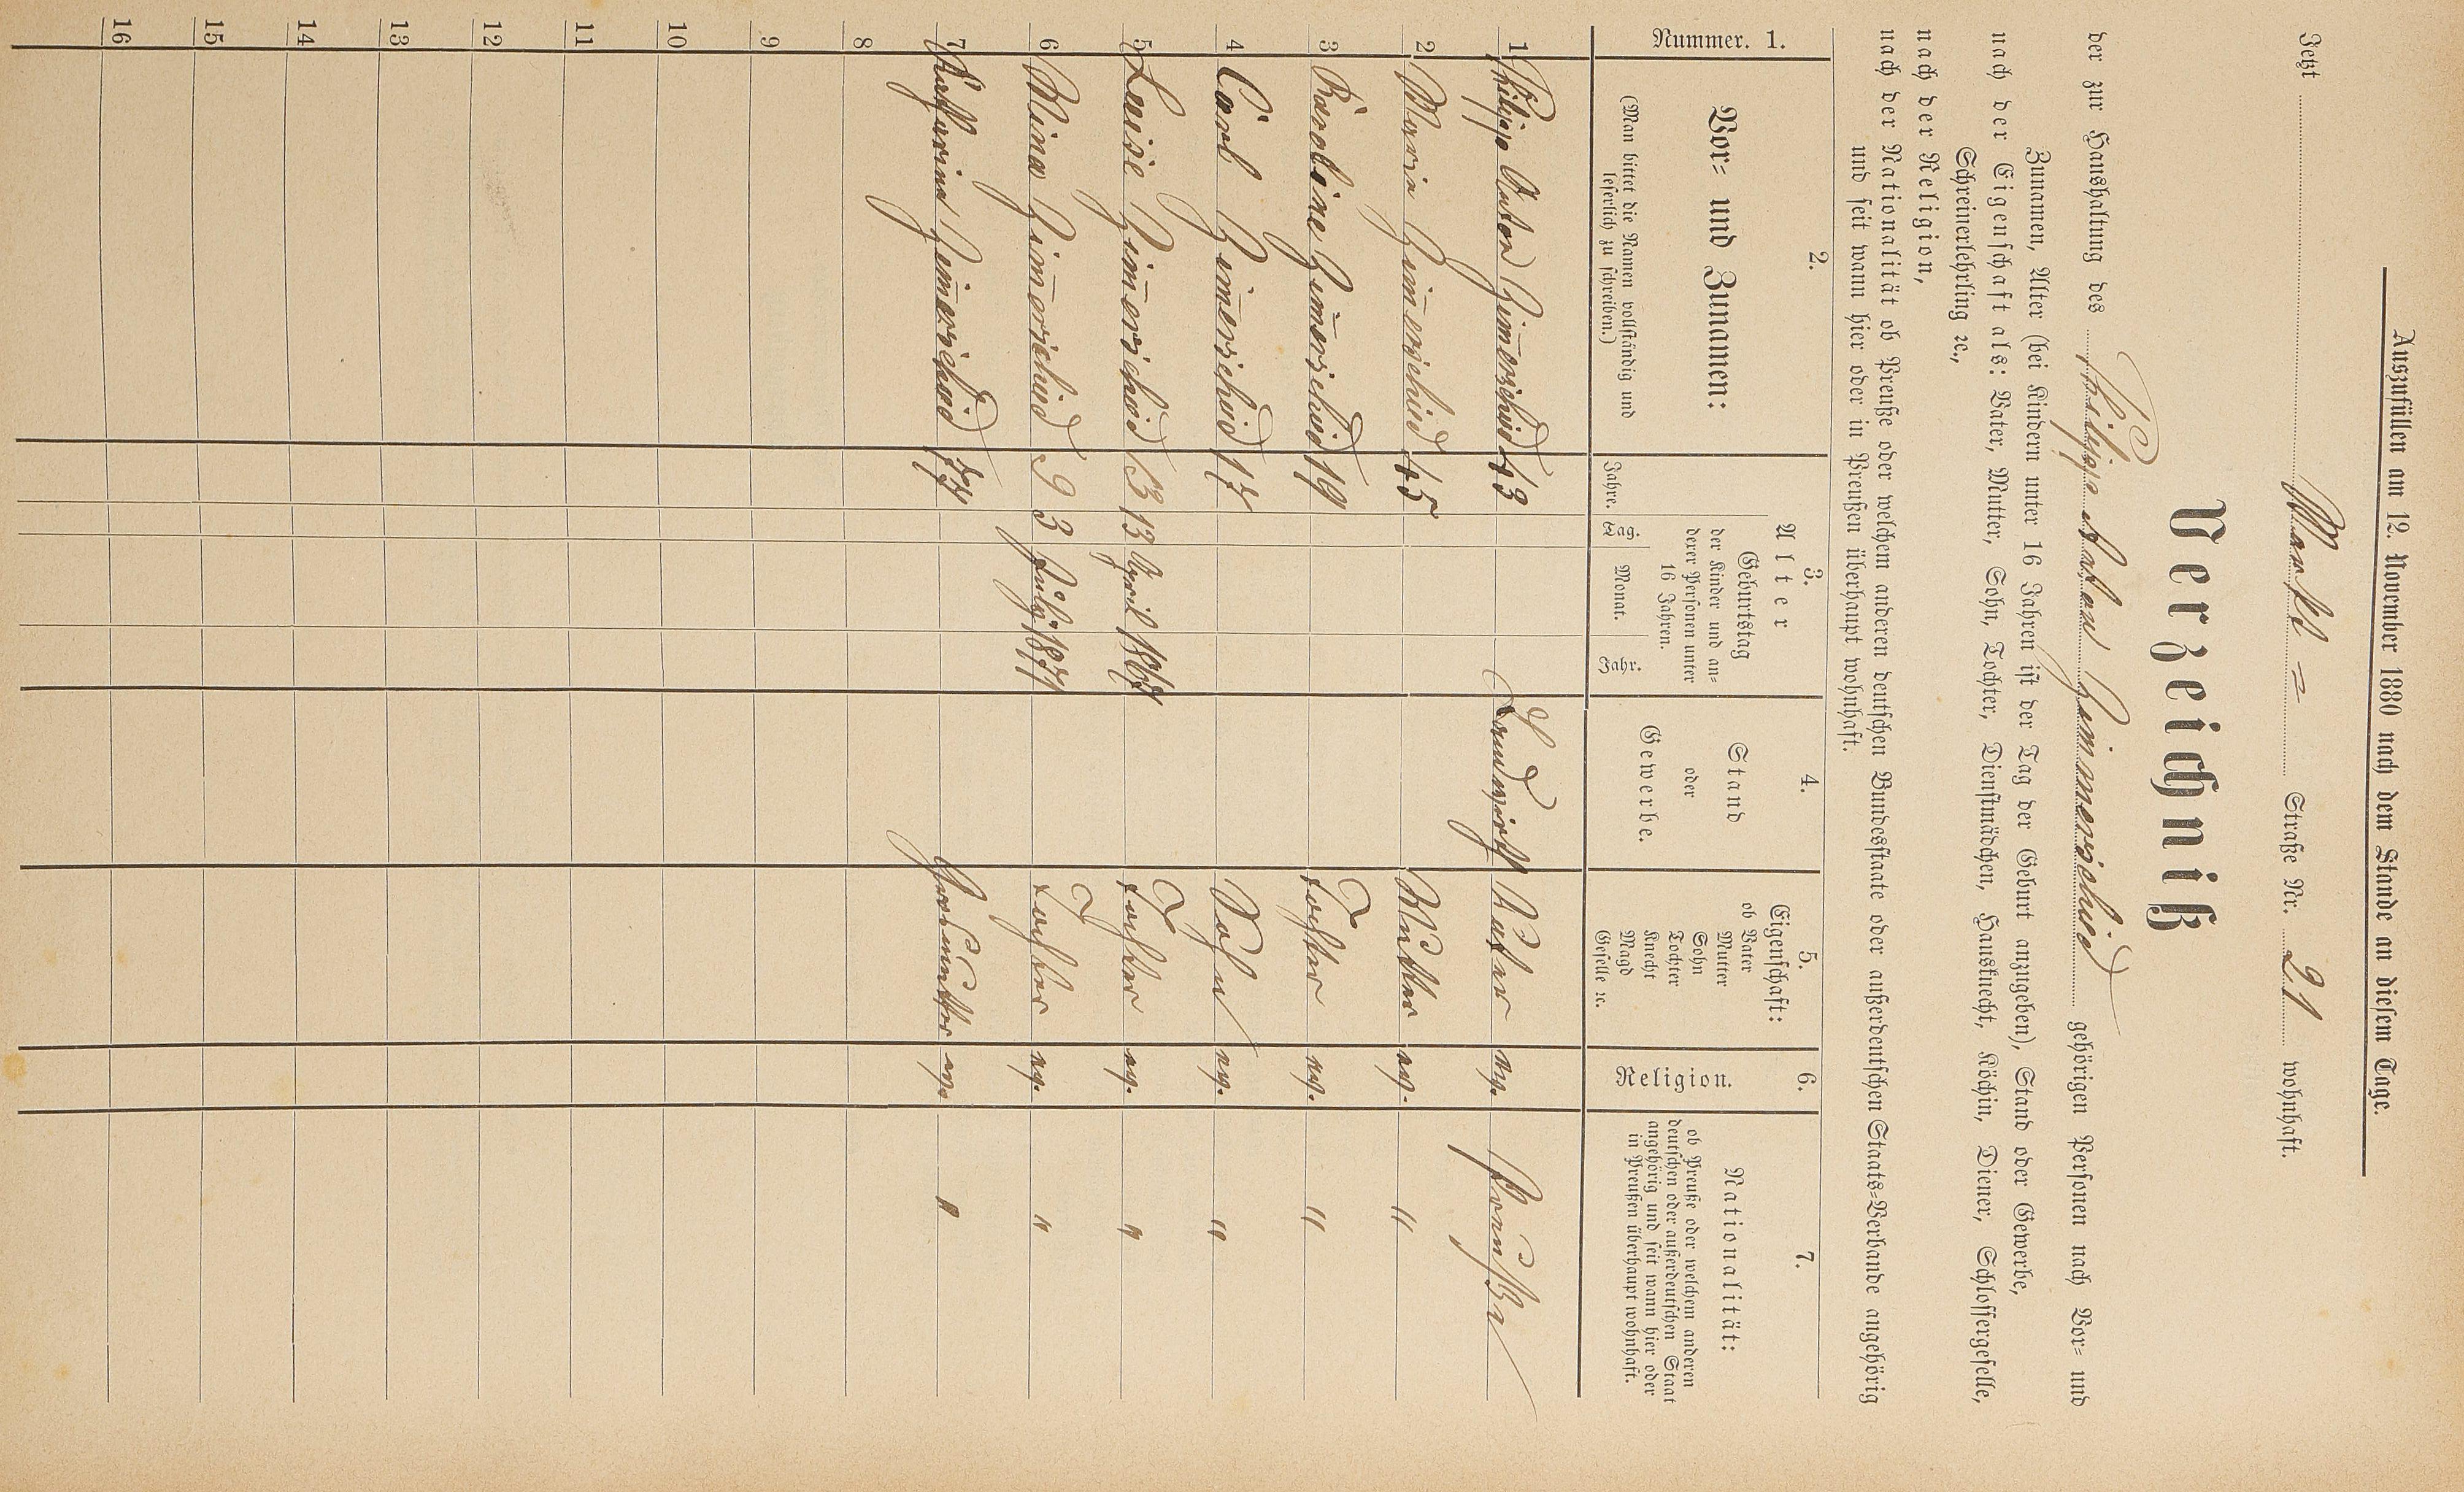 Auszufüllen am 12. November 1880 nach dem Stande an diesem Tage.
Jetzt Markt = Straße Nr. 21 wohnhaft.
Verzeichniß
der zur Haushaltung des Philipp Anton Himmerscheid gehörigen Personen nach Vor= und
Zunamen, Alter (bei Kindern unter 16 Jahren ist der Tag der Geburt anzugeben), Stand oder Gewerbe,
nach der Eigenschaft als: Vater, Mutter, Sohn, Tochter, Dienstmädchen, Hausknecht, Köchin, Diener, Schlossergeselle,
Schreinerlehrling ꝛc.,
nach der Religion,
nach der Nationalität ob Preuße oder welchem anderen deutschen Bundesstaate oder außerdeutschen Staats=Verbande angehörig
und seit wann hier oder in Preußen überhaupt wohnhaft.
Nummer. 1.
2.
Vor= und Zunamen:
(Man bittet die Namen vollständig und
leserlich zu schreiben.)
3.
Alter
Jahre.
Geburtstag
der Kinder und an=
derer Personen unter
16 Jahren.
Tag. Monat. Jahr.
4.
Stand
oder
Gewerbe.
5.
Eigenschaft:
ob Vater
Mutter
Sohn
Tochter
Knecht
Magd
Geselle ꝛc.
6.
Religion.
7.
Nationalität:
ob Preuße oder welchem anderen
deutschen oder außerdeutschen Staat
angehörig und seit wann hier oder
in Preußen überhaupt wohnhaft.
1 Philipp Anton Him̅erscheid 43 Landwirth Vater ev. Preuße
2 Maria Him̅erscheid 45 Mutter ev. "
3 Karoline Him̅erscheid 19 Tochter ev. "
4 Carl Him̅erscheid 17 Sohn ev. "
5 Luise Him̅erscheid 13 13 April 1867 Tochter ev. "
6 Mina Him̅erscheid 9 3 July 1871 Tochter ev. "
7 Katharina Him̅erscheid 77 Großmutter ev. "
8
9
10
11
12
13
14
15
16